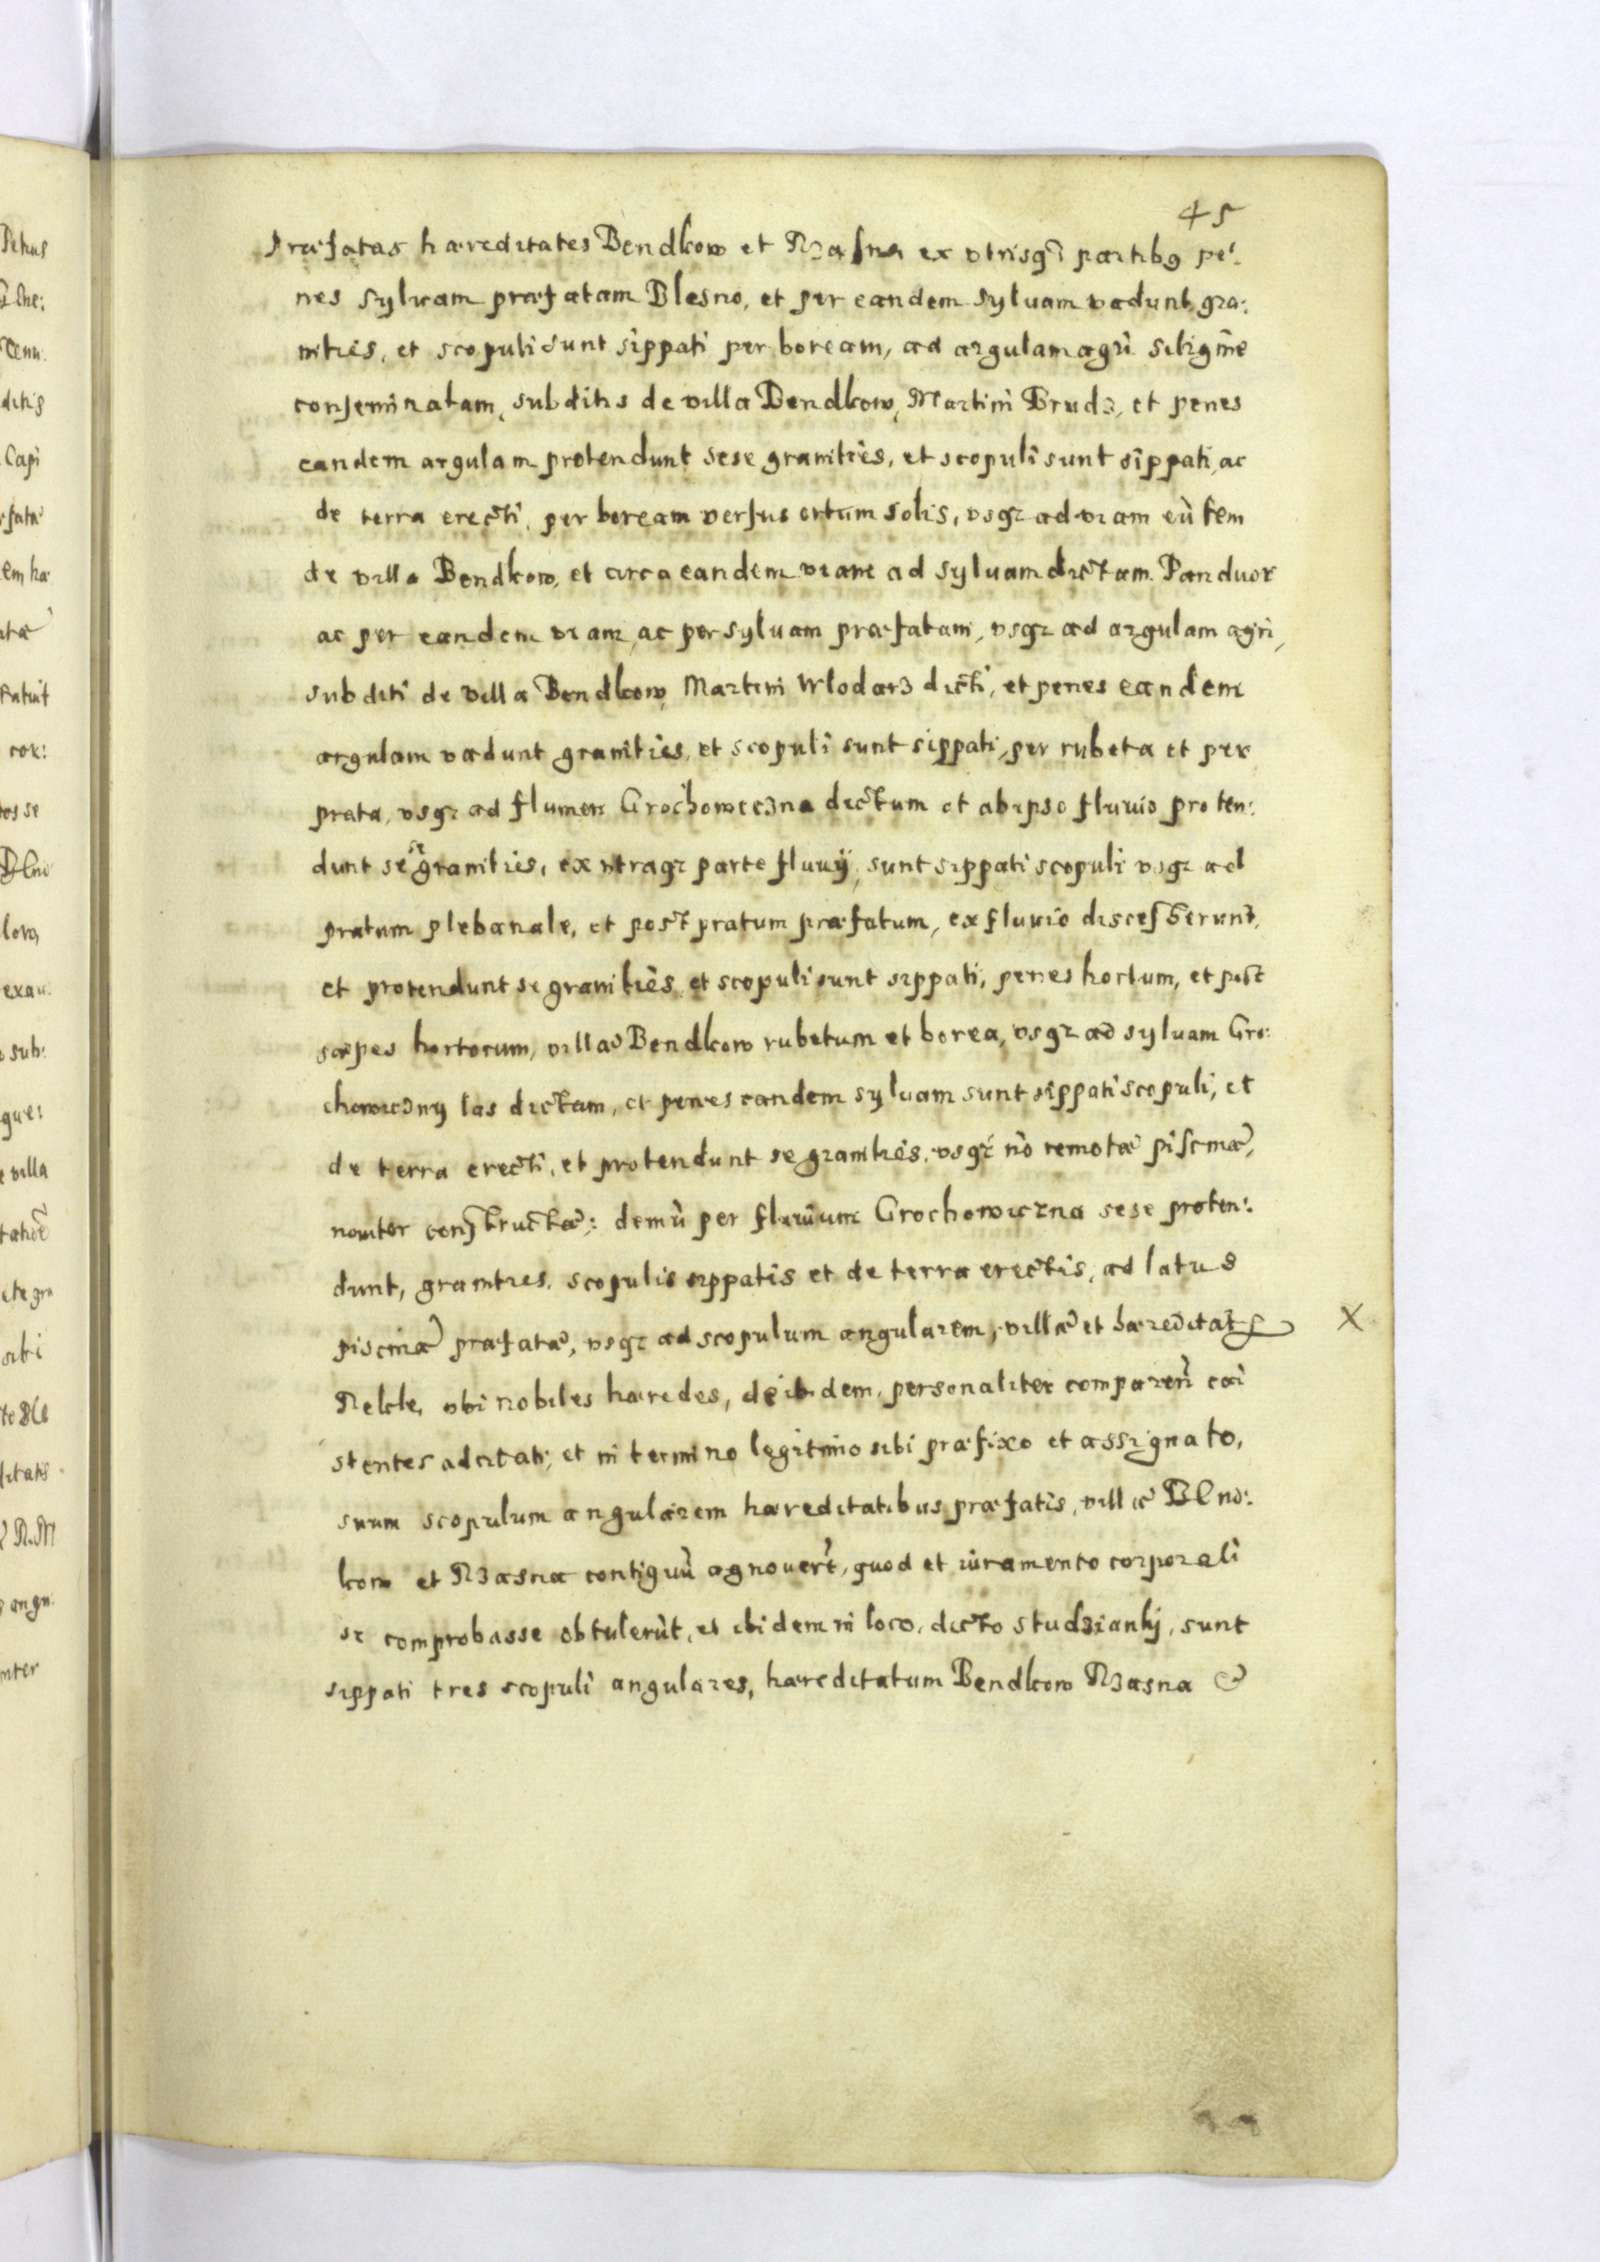 45
præfatas hæreditates Bendkow et Rzasna ex vtrisq; partibus pe:
nes syluam præfatam Blesno, et per eandem syluam vadunt gra:
nities, et scopuli sunt sippati per boream, ad argulam agri siligine
conseminatam, subditis de villa Bendkow, Martini Brudz, et penes
eandem argulam protendunt sese granities, et scopuli sunt sippati, ac
de terra erecti, per boream versus ortum solis, vsq; ad viam eũtem
de villa Bendkow, et circa eandem viam ad syluam dictam Panduor
ac per eandem viam, ac per syluam præfatam, vsq; ad argulam agri,
subditi de villa Bendkow, Martini Wlodarz dicti, et penes eandem
argulam vadunt granities, et scopuli sunt sippati, per rubeta et per
prata, vsq; ad flumen Grochowiczna dictum et ab ipso fluuio proten:
dunt se granities, ex vtraq; parte fluuij, sunt sippati scopuli vsq; ad
pratum plebanale, et post pratum præfatum, ex fluuio discesserunt,
et protendunt se granities et scopuli sunt sippati, penes hortum, et post
sæpes hortorum, villæ Bendkow rubetum et borea, vsq; ad syluam Gro:
chowiczny las dictam, et penes eandem syluam sunt sippati scopuli, et
de terra erecti, et protendunt se granities, vsq; nõ remotæ piscinæ,
nouiter constructæ: demũ per fluuium Grochowiczna sese proten:
dunt, granities, scopulis sippatis et de terra erectis, ad latus
piscinæ præfatæ, vsq; ad scopulum angularem, villæ et hæreditatis X
Rekle, vbi nobiles hæredes, de ibidem, personaliter comparẽ cõi
stentes adcitati, et in termino legitimo sibi præfixo et assignato,
suum scopulum angularem hæreditatibus præfatis, villæ Bend:
kow et Rzasna contiguũ agnouert, quod et iuramento corporali
se comprobasse obtulerũt, et ibidem in loco, dicto studzianki, sunt
sippati tres scopuli angulares, hæreditatum Bendkow Rzasna &